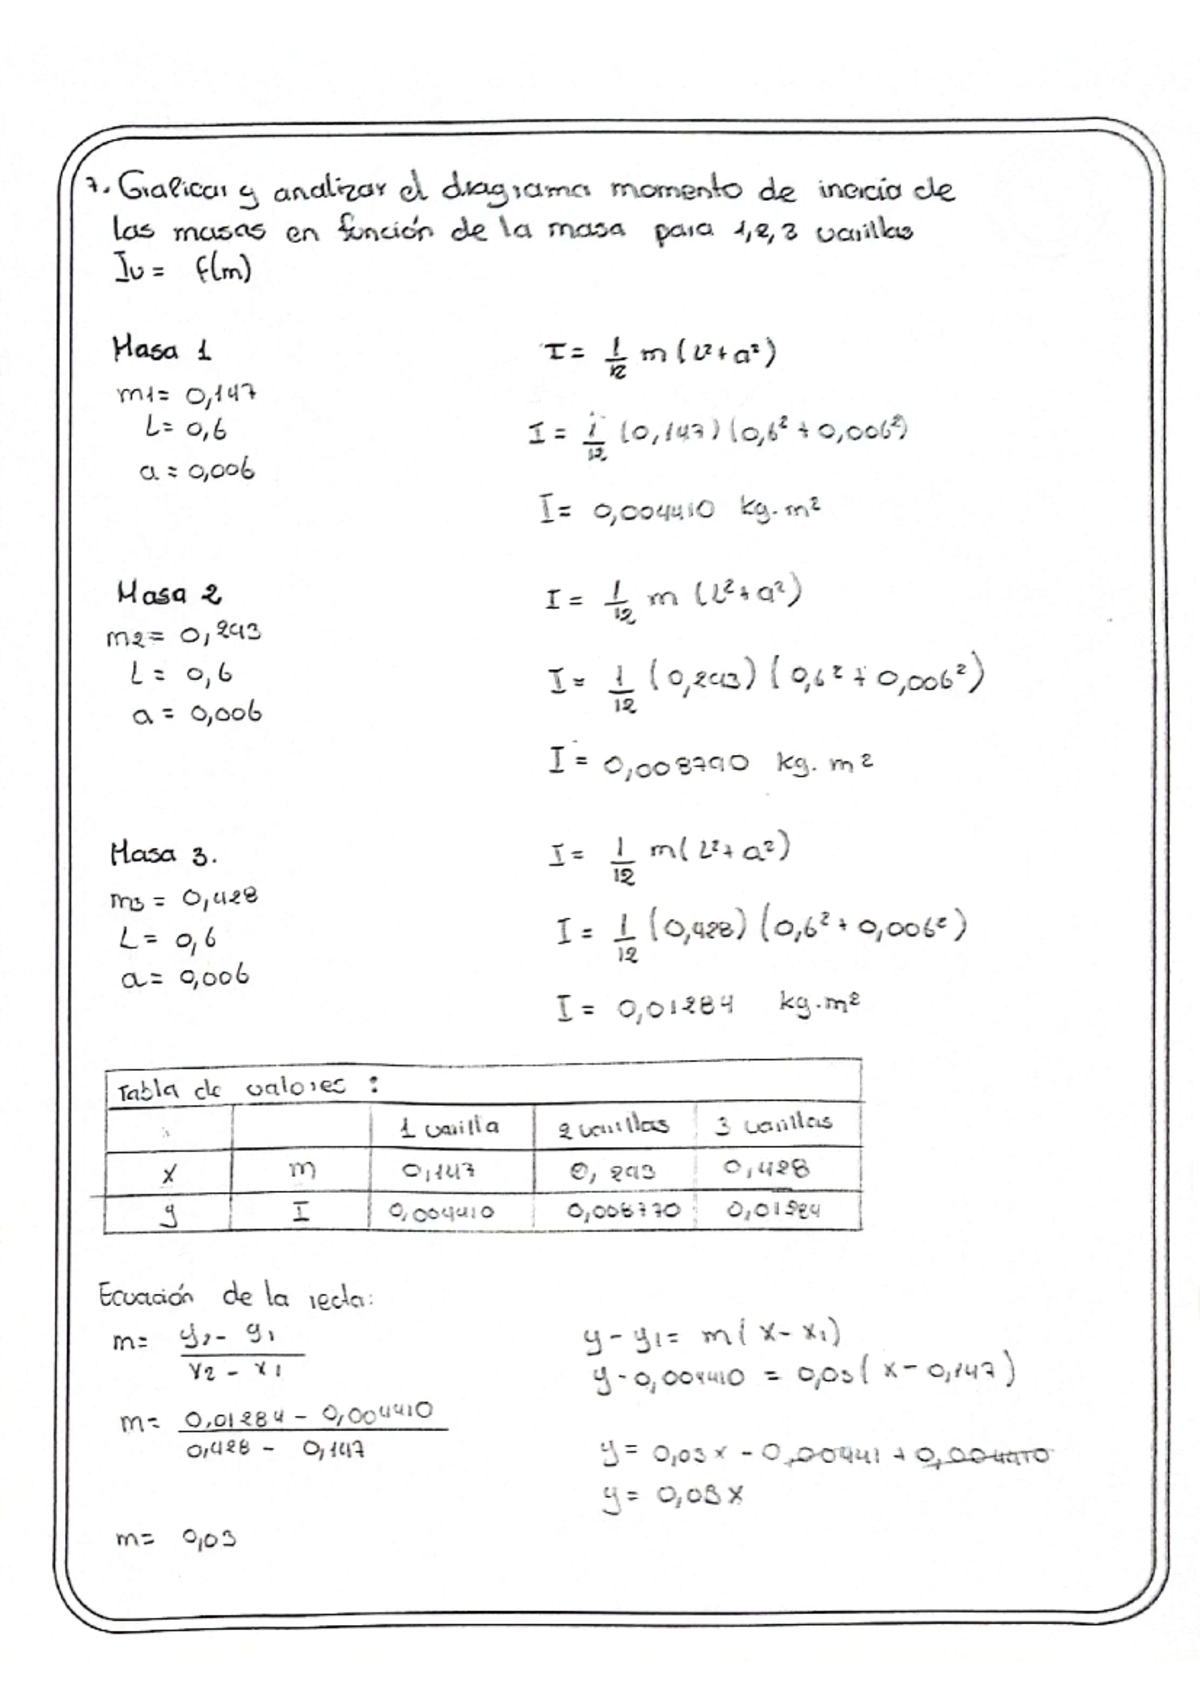 7. Graficar y analizar el diagrama momento de inercia de
las masas en función de la masa para 1,2,3 varillas
Iv = f(m)
Masa 1
m1= 0,147
L= 0,6
a = 0,006
I = 1/12 m (L²+a²)
I = 1/12 (0,147) (0,6² + 0,006²)
I= 0,004410 kg.m²
Masa 2
m2= 0,293
L= 0,6
a = 0,006
I = 1/12 m (L²+a²)
I = 1/12 (0,293) (0,6² + 0,006²)
I = 0,008790 kg. m²
Masa 3.
m3 = 0,428
L= 0,6
a= 0,006
I = 1/12 m( L²+ a²)
I = 1/12 (0,428) (0,6² + 0,006²)
I = 0,01284 kg.m²
Tabla de valores :
1 varilla 2 varillas 3 varillas
x m 0,147 0,293 0,428
y I 0,004410 0,008770 0,01284
Ecuación de la recta:
m= y2 - y1 / x2 - x1
m= 0,01284 - 0,004410 / 0,428 - 0,147
m= 0,03
y - y1= m( x- x1)
y - 0,004410 = 0,03( x - 0,147)
y = 0,03x - 0,00441 + 0,004410
y = 0,03x